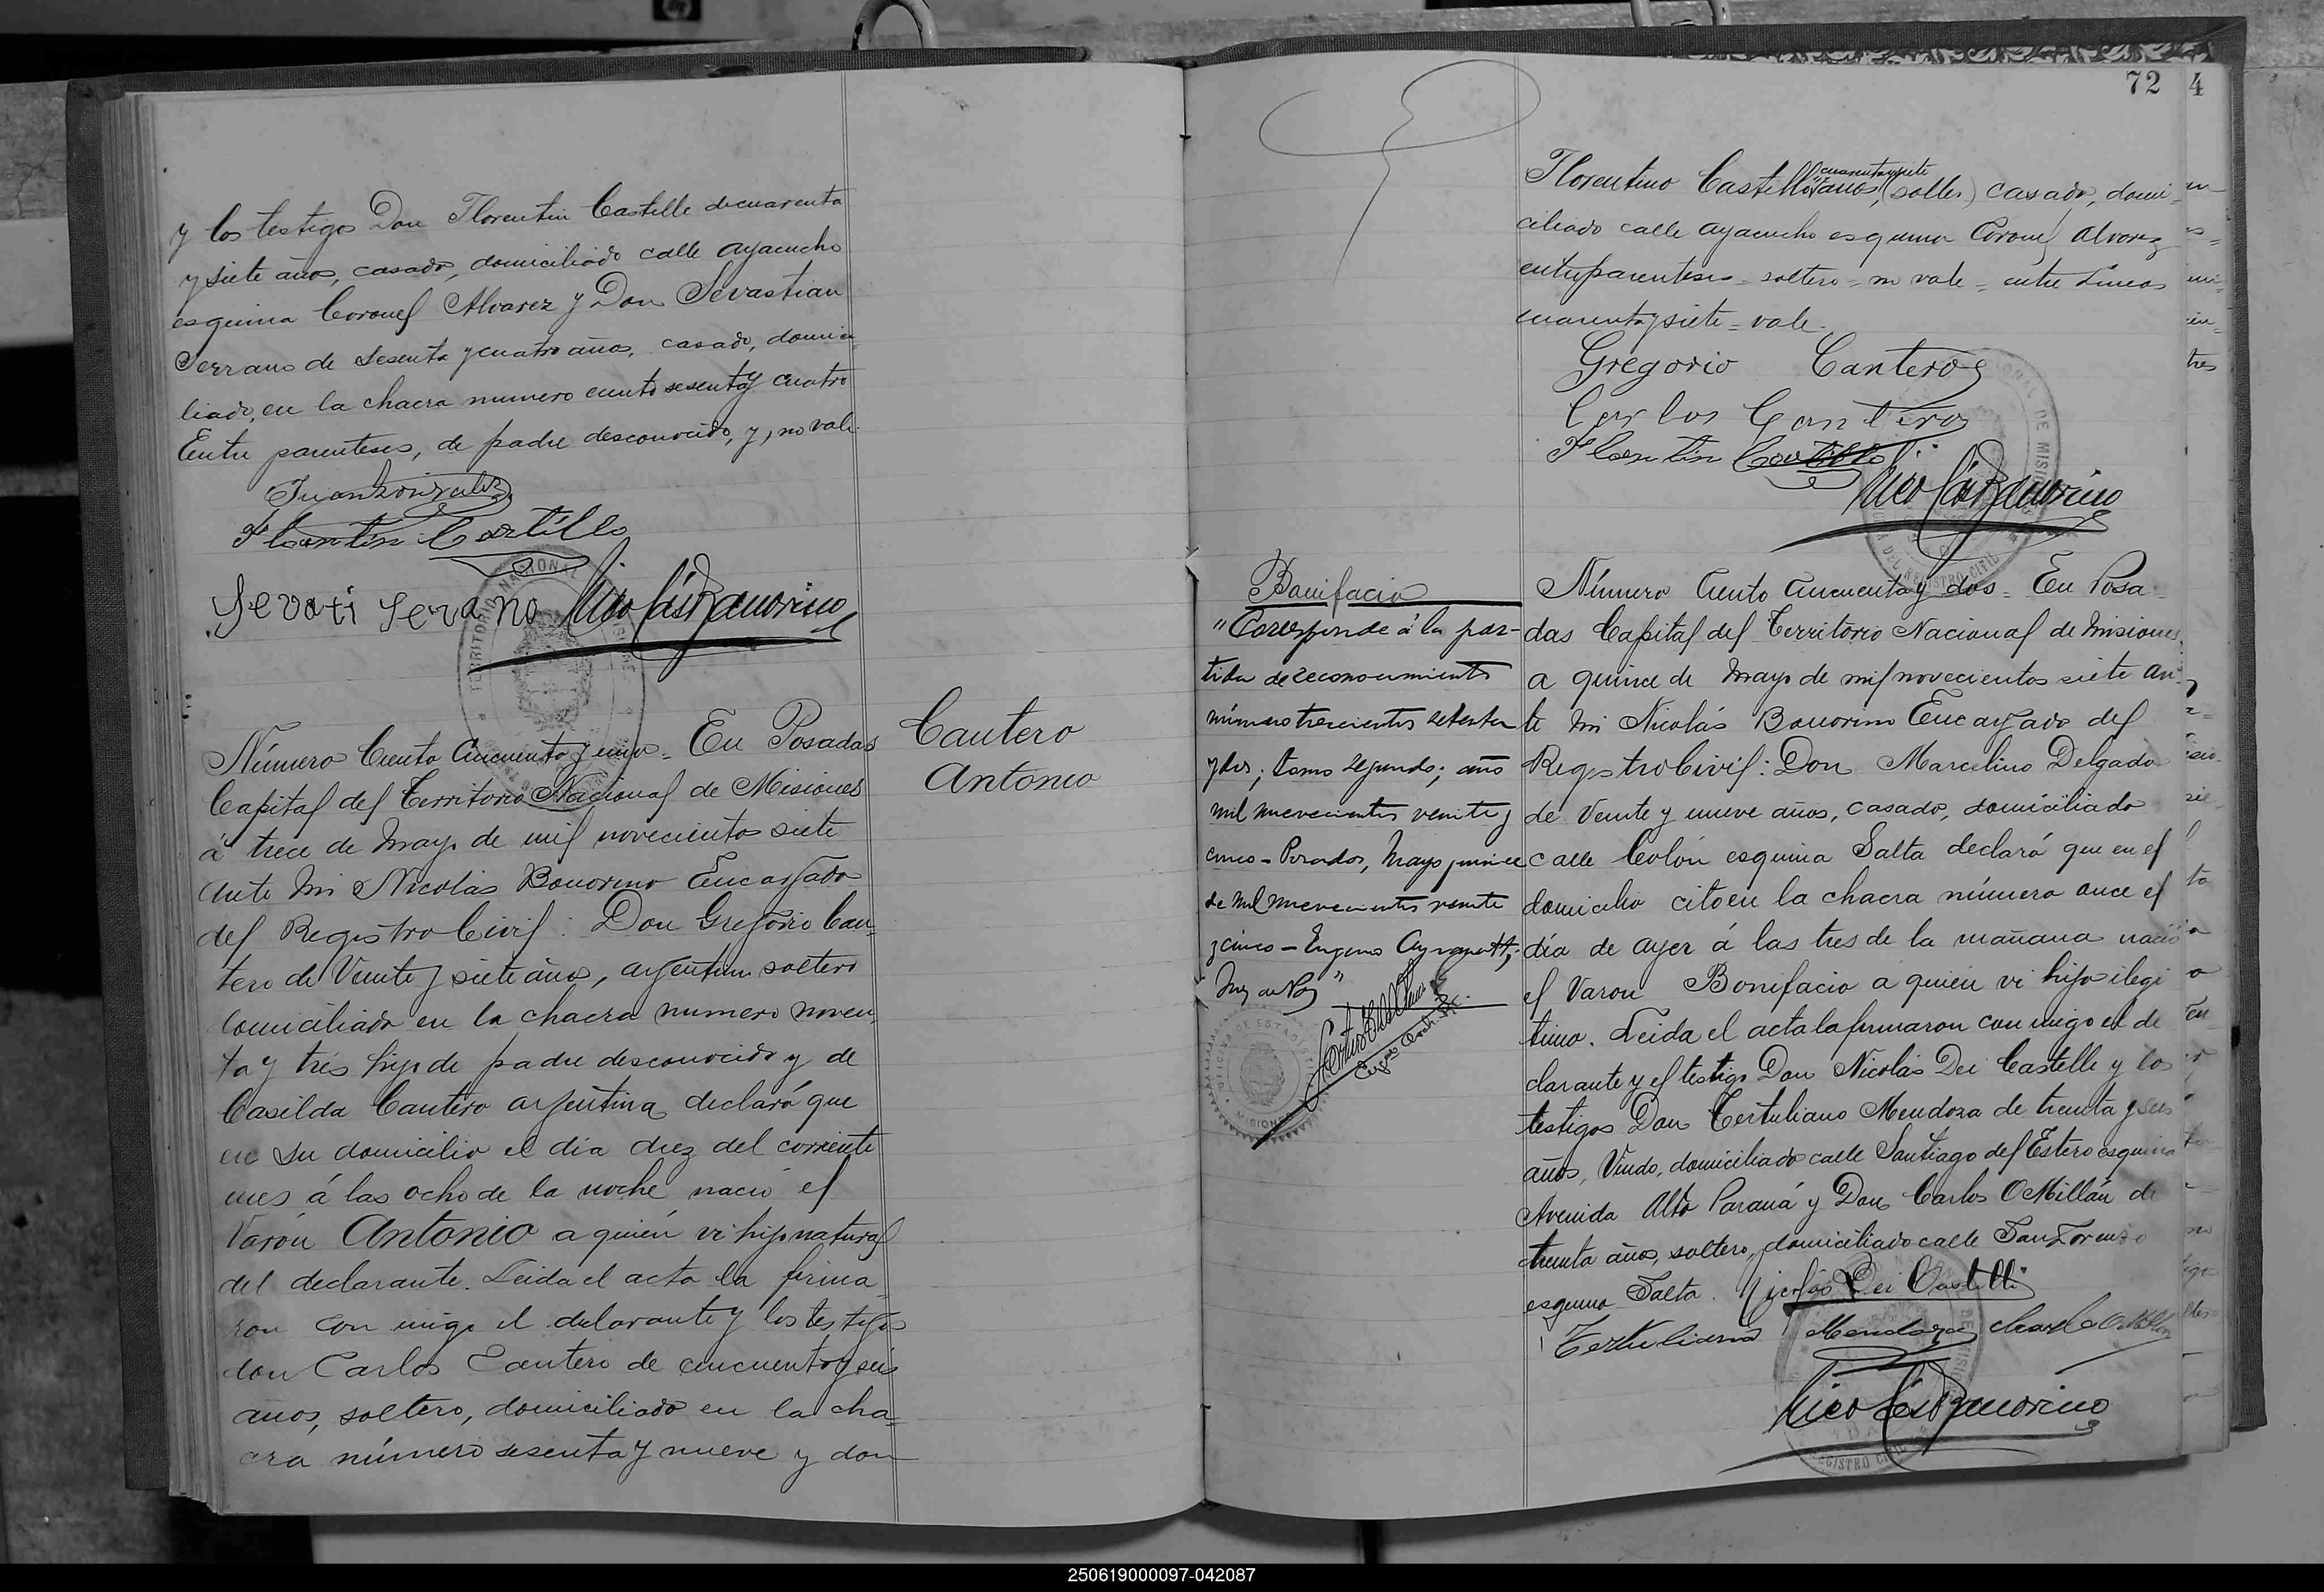 y los testigos Don Florentin Castillo de cuarenta
y siete años, casado, domiciliado calle Ayacucho
esquina Coronel Alvarez y Don Sevastian
Serrano de Sesenta y cuatro años, casado, domici
liado, en la chacra numero ciento sesenta y cuatro
Entre parentesis, de padre desconocido, y, no vale.
Juan Gonzalez
Florentin Castillo
Sevati Serano Nicolás Bonorino
Número Ciento Cincuenta y uno = En Posadas
Capital del Territorio Nacional de Misiones
á trece de Mayo de mil novecientos siete
Ante Mi Nicolás Bonorino Encargado
del Registro Civil: Don Gregorio Can-
tero de Veinte y siete años, argentino soltero
domiciliado en la chacra numero noven-
ta y tres hijo de padre desconocido y de
Casilda Cantero argentina declaró que
en su domicilio el dia diez del corriente
mes á las ocho de la noche nació el
Varón Antonio a quién vi hijo natural
del declarante. Leida el acta la firma
ron con migo el declarante y los testigos
don Carlos Cantero de cincuenta y seis
años, soltero, domiciliado en la cha-
cra número sesenta y nueve y don
Cantero
Antonio
72 4
Florentino Castillo, cuarenta y siete años, (solter) casado, domi-
ciliado calle Ayacucho esquina Coronel Alvarez
entreparentesis = soltero = no vale = entre Lineas
cuarenta y siete = vale.
Gregorio Cantero
Carlos Cantero
Florentin Castillo
Nicolás Bonorino
Bonifacio
"Corresponde á la par-
tida de reconocimiento
número trescientos setenta
y dos; tomo segundo; año
mil novecientos veinte y
cinco - Posadas, Mayo quince
de mil novecientos veinte
y cinco - Eugenio
Juez de Paz"
Número Ciento Cincuenta y dos = En Posa-
das Capital del Territorio Nacional de Misiones
a quince de Mayo de mil novecientos siete an-
te mi Nicolás Bonorino Encargado del
Registro Civil: Don Marcelino Delgado
de Veinte y nueve años, casado, domiciliado
calle Colón esquina Salta declaró que en el
domicilio cito en la chacra número once el
día de ayer á las tres de la mañana nació
el Varon Bonifacio a quién vi hijo ilegi
timo. Leida el acta la firmaron con migo el de
clarante y el testigo Don Nicolás Dei Castelli y los
testigos Don Tertuliano Mendoza de treinta y seis
años, Viudo, domiciliado calle Santiago del Estero esquina
Avenida Alto Paraná y Don Carlos O Millán de
treinta años, soltero, domiciliado calle San Lorenzo
esquina Salta. Nicolás Dei Castelli
Tertuliano Mendoza
Nicolás Bonorino
250619000097-042087